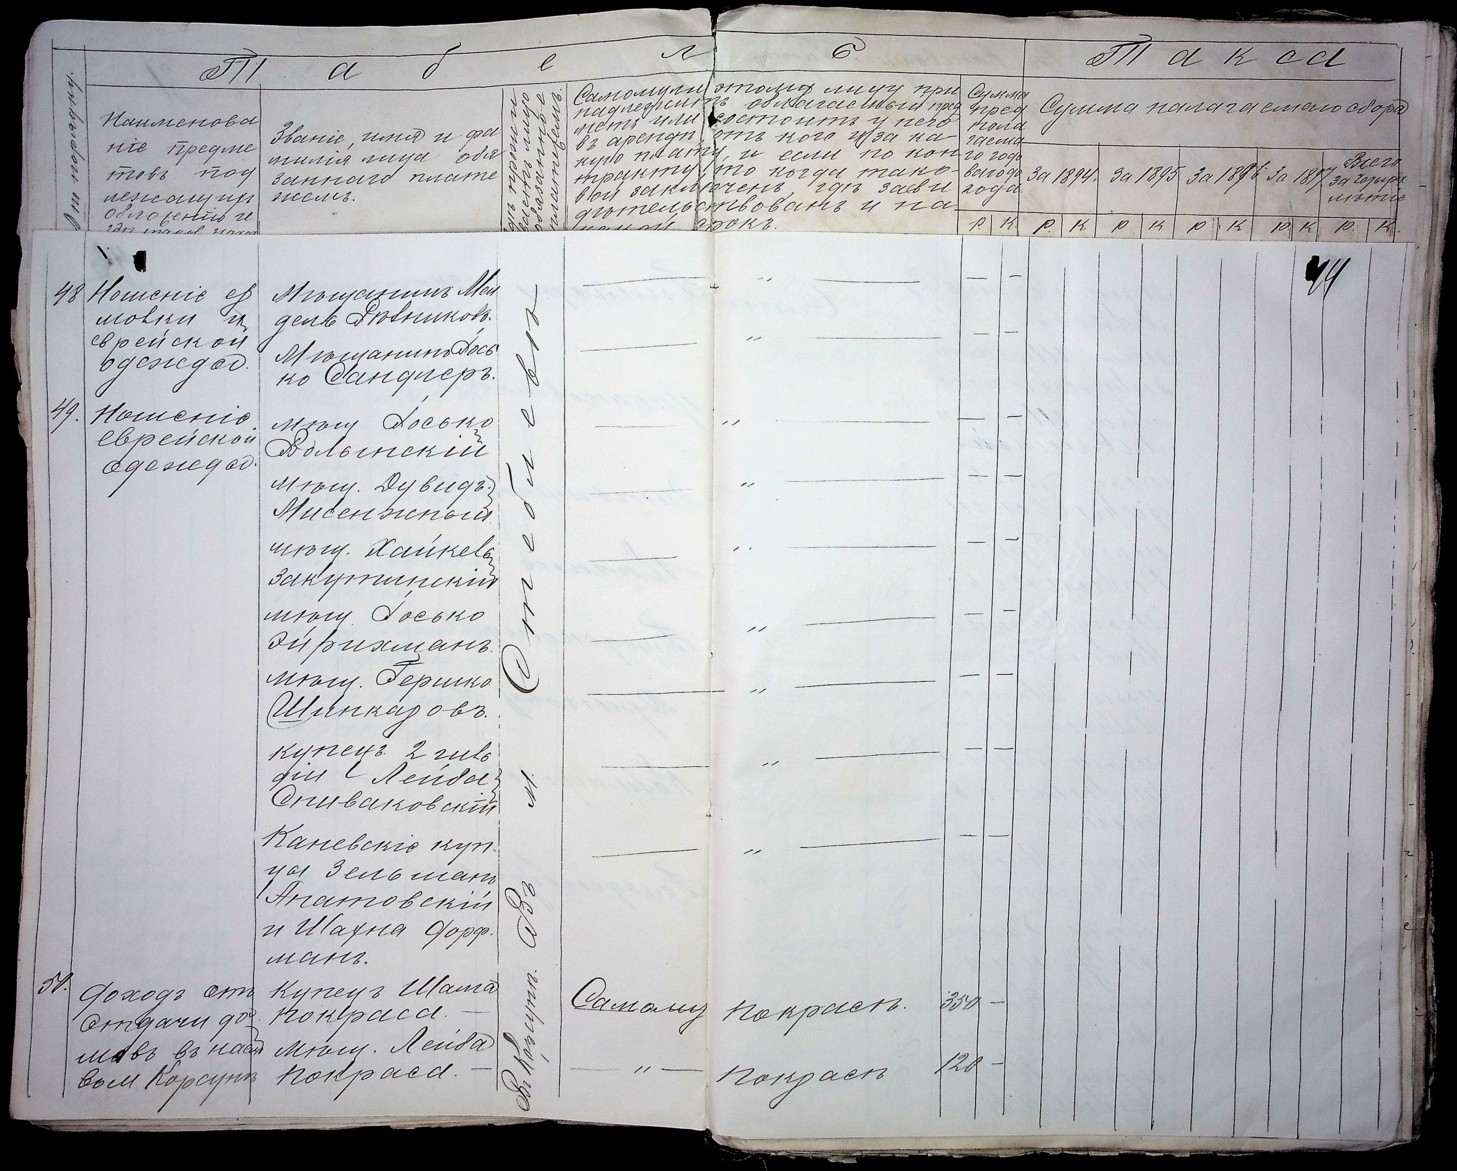 Табель
Такса
Наименова
ніе предме
товъ под
лежащихъ
обложенію и
Званіе, имя и фа
милія лица обя
заннаго плате
жемъ.
Самому ли этому лицу при
надлежитъ облагаемый пред
метъ или состоитъ у него
въ арендѣ, отъ кого и за ка-
кую плату, и если по кон
тракту, то когда тако-
вой заключенъ, гдѣ засви
дѣтельствованъ и на
какой срокъ.
Сумма
пред
пола
гаема
го годо
ваго до
хода
Сумма налагаемаго сбора
За 1894. За 1895 За 1896. За 1897
Всего
за четыре
лѣтіе
р. к. р. к р к р к р к р. к.
44
48 Ношеніе ер
молки и
еврейской
одежды.
Мѣщанинъ Мен
дель Ровниковъ.
Мѣщанинъ Іось
ко Сандлеръ.
49. Ношеніе
еврейской
одежды.
мѣщ Іосько
Волынскій
мѣщ. Дувидъ
Мисенжной
мѣщ. Хайкель
Закутинскій
мѣщ Іосько
Эйрихманъ.
мѣщ. Гершко
Шинкаровъ.
купецъ 2 гиль
діи Лейба
Спиваковскій
Каневскіе куп.
цы Зельманъ
Апатовскій
и Шахна Дорф.
манъ.
50. Доходъ отъ
отдачи до-
мовъ въ наемъ
въ м Корсунѣ
Купецъ Шама
Покраса. —
мѣщ. Лейба
Покраса. —
Самому Покрасѣ. 350 —
— „ — Покрасѣ 120 —